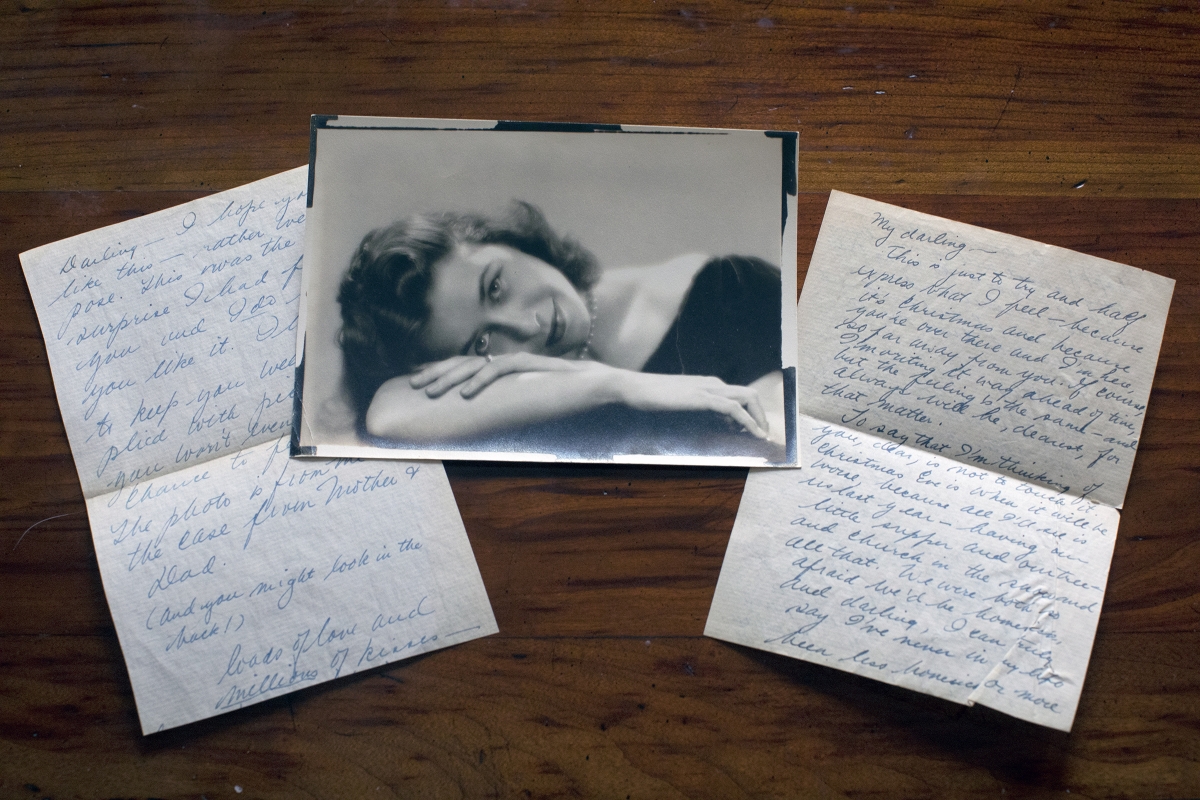 Darling — I hope yo
like this — rather we
pose. This was the
surprise I had f
you and I do
you like it.
to keep you wee
plied with pic
you won't even
chance to f
The photo is from me
the case from Mother &
Dad.
(and you might look in the
back!)
loads of love and
millions of kisses —
My darling —
This is just to try and half
express what I feel — because
it's Christmas and because
you're over there and I'm here,
so far away from you. Of course,
I'm writing it way ahead of time,
but the feeling's the same — and
always will be, dearest, for
that matter.
To say that I'm thinking of
you, dear, is not to touch it.
Christmas Eve is when it will be
worse, because all I'll see is
us last year — having our
little supper and our tree
and church in the snow and
all that. We were both so
afraid we'd be homesick,
and darling, I can truly
say I've never in my life
been less homesick or more